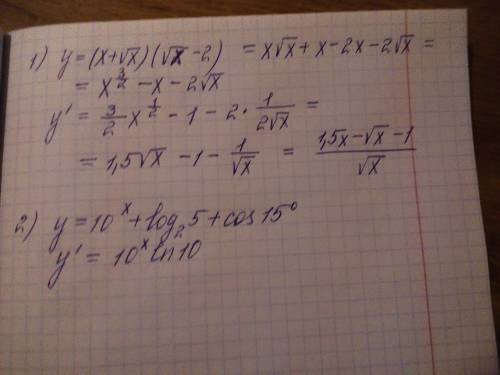 1) y = (x+√x)(√x - 2) = x√x + x - 2x - 2√x =
= x^(3/2) - x - 2√x
y' = 3/2 x^(1/2) - 1 - 2 · 1/(2√x) =
= 1,5√x - 1 - 1/√x = (1,5x - √x - 1)/√x
2) y = 10^x + log₂5 + cos 15°
y' = 10^x ln 10